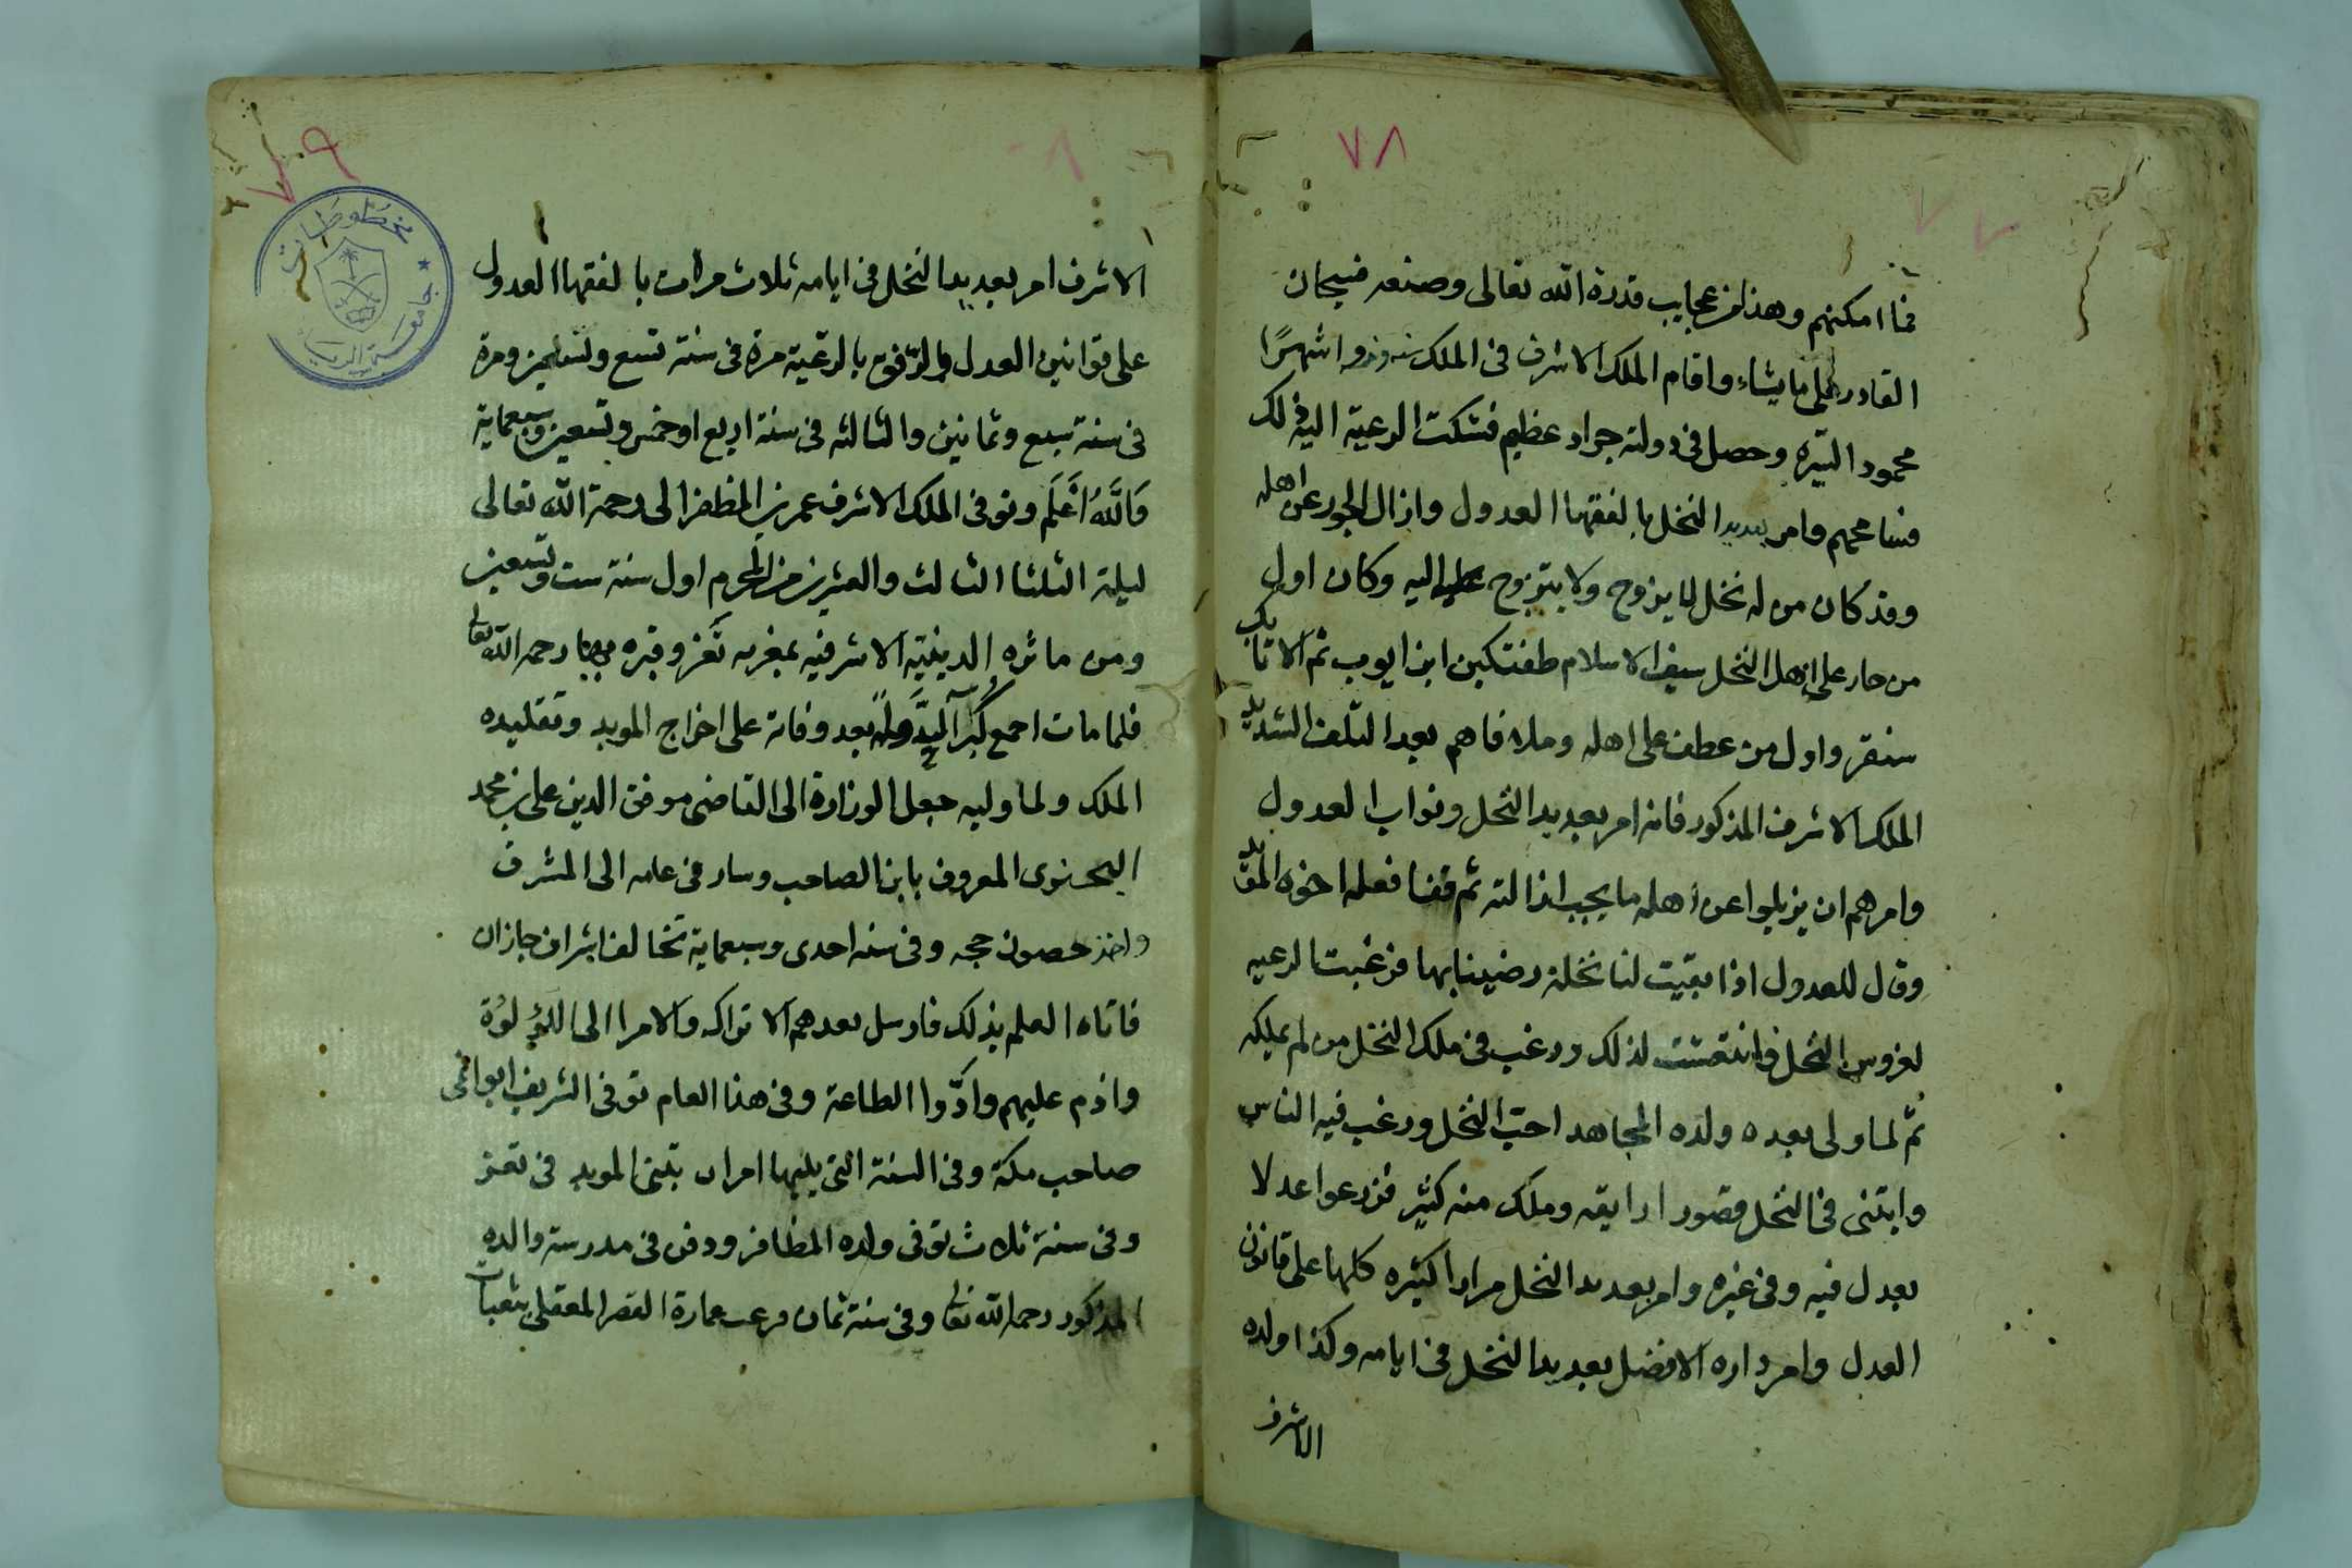 ٧٨
فما امكنهم وهذا من عجايب قدرة الله تعالى وصنعه فسبحان
القادر على ما يشاء واقام الملك الاشرف في الملك سنه وزو اشهرًا
محمود السيره وحصل في دولته جراد عظيم فشكت الرعية اليه ذلك
فسامحهم وامر بعديد النخل بالفقها العدول وازال الجور عن اهله
وقد كان من له نخل لا يزوج ولا يتزوج اليه وكان اول
من جار على اهل النخل سيف الاسلام طغتكين ابن ايوب ثم الاتابك
سنقر واول من عطف على اهله وملا فاهم بعد التلف الشديد
الملك الاشرف المذكور فانه امر بعديد النخل ونواب العدول
وامرهم ان يزيلوا عن اهله ما يجب ازالته ثم قفا فعله اخوه المؤيد
وقال للعدول اذا بقيت لنا نخلة رضينا بها فرغبت الرعيه
لغروس النخل وانتعشت لذلك ورغب في ملك النخل من لم يملكه
ثم لما ولى بعده ولده المجاهد احب النخل ورغب فيه الناس
وابتنى في النخل قصور ارايقه وملك منه كثير فزدعوا عدلا
بعدل فيه وفي غيره وامر بعديد النخل مرارا كثيره كلها على قانون
العدل وامر داره الافضل بعديد النخل في ايامه وكذا ولده
الاشرف
٧٩
مخطوطات
جامعة الرياض
الاشرف امر بعديد النخل في ايامه ثلاث مرات بالفقها العدول
على قوانين العدل والرفق بالرعية مرة في سنة تسع وسبعين ومرة
في سنة سبع وثمانين والثالثه في سنة اربع او خمس وتسعين وسبعماية
وَاللَّهُ أَعْلَم وتوفى الملك الاشرف عمر بن المظفر الى رحمة الله تعالى
ليلة الثلثا الثالث والعشرين من المحرم اول سنة ست وتسعين
ومن ماثره الدينية الاشرفيه بمغربه تعز وقبره بها رحمه الله تعالى
فلما مات اجمع كبرآ الدولة بعد وفاته على اخراج المويد وتقليده
الملك ولما وليه جعل الوزارة الى القاضى موفق الدين على بن محمد
اليحنوى المعروف بابن الصاحب وسار في عامه الى المشرف
واخذ حصون حجه وفي سنه احدى وسبعماية تخالف اشراف جازان
فاتاه العلم بذلك فارسل بعدهم الاتراك والامرا الى اللؤلؤة
واذم عليهم وادّوا الطاعة وفي هذا العام توفى الشريف ابو انمى
صاحب مكة وفي السنة التى يليها امر ان يبتنى المويد في تعز
وفي سنة ثلاث توفى ولده المظافر ودفن في مدرسة والده
المذكور رحمه الله تعالى وفي سنة ثمان فرغت عمارة القصر المعقلى بثعبات